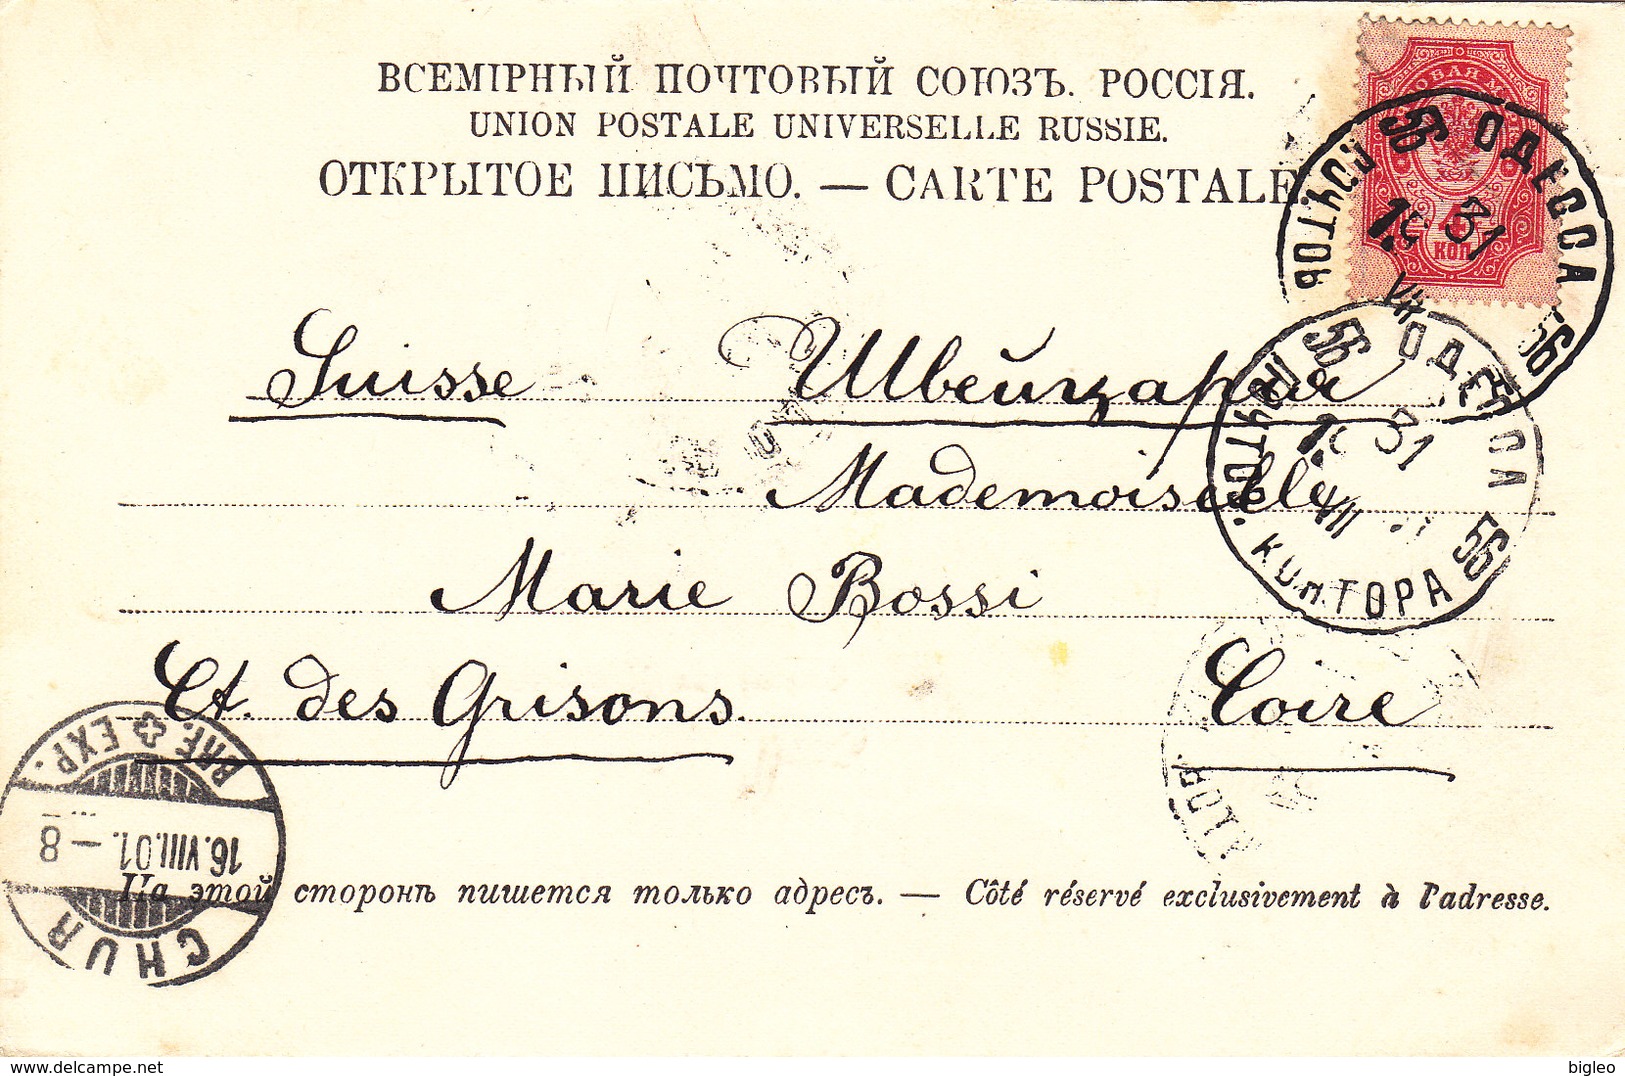 ВСЕМІРНЫЙ ПОЧТОВЫЙ СОЮЗЪ. РОССІЯ.
UNION POSTALE UNIVERSELLE RUSSIE.
ОТКРЫТОЕ ПИСЬМО. — CARTE POSTALE
4
КОП
56 ОДЕССА 56
31
VII
Suisse Швейцарія
56 ОДЕССА 56
31
VII
КОНТОРА
Mademoiselle
Marie Bossi
Ct. des Grisons. Coire
BRF. EXP.
16.VIII.01.–8
CHUR
На этой сторонѣ пишется только адресъ. — Côté réservé exclusivement à l'adresse.
delcampe.net
bigleo